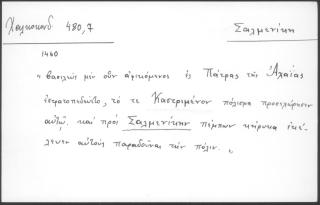 Χαλκοκονδ 480,7
Σαλμενίκη
1460
ὁ βασιλεὺς μὲν οὖν ἀφικόμενος ἐς Πάτρας τῆς Ἀχαΐας
ἐστρατοπεδεύετο, τό τε Καστριμένον πόλισμα προσεχώρησεν
αὐτῷ. καὶ πρὸς Σαλμενίκην πέμπων κήρυκα ἐκέ-
λευεν αὐτοὺς παραδοῦναι τὴν πόλιν.